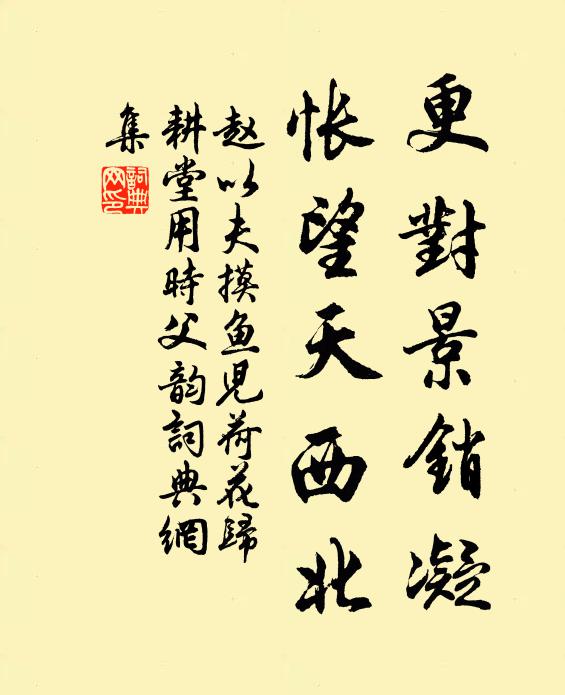 更對景銷凝
悵望天西北
赵以夫摸鱼児荷花歸
耕堂用時父韵詞典網
集
詞典网印